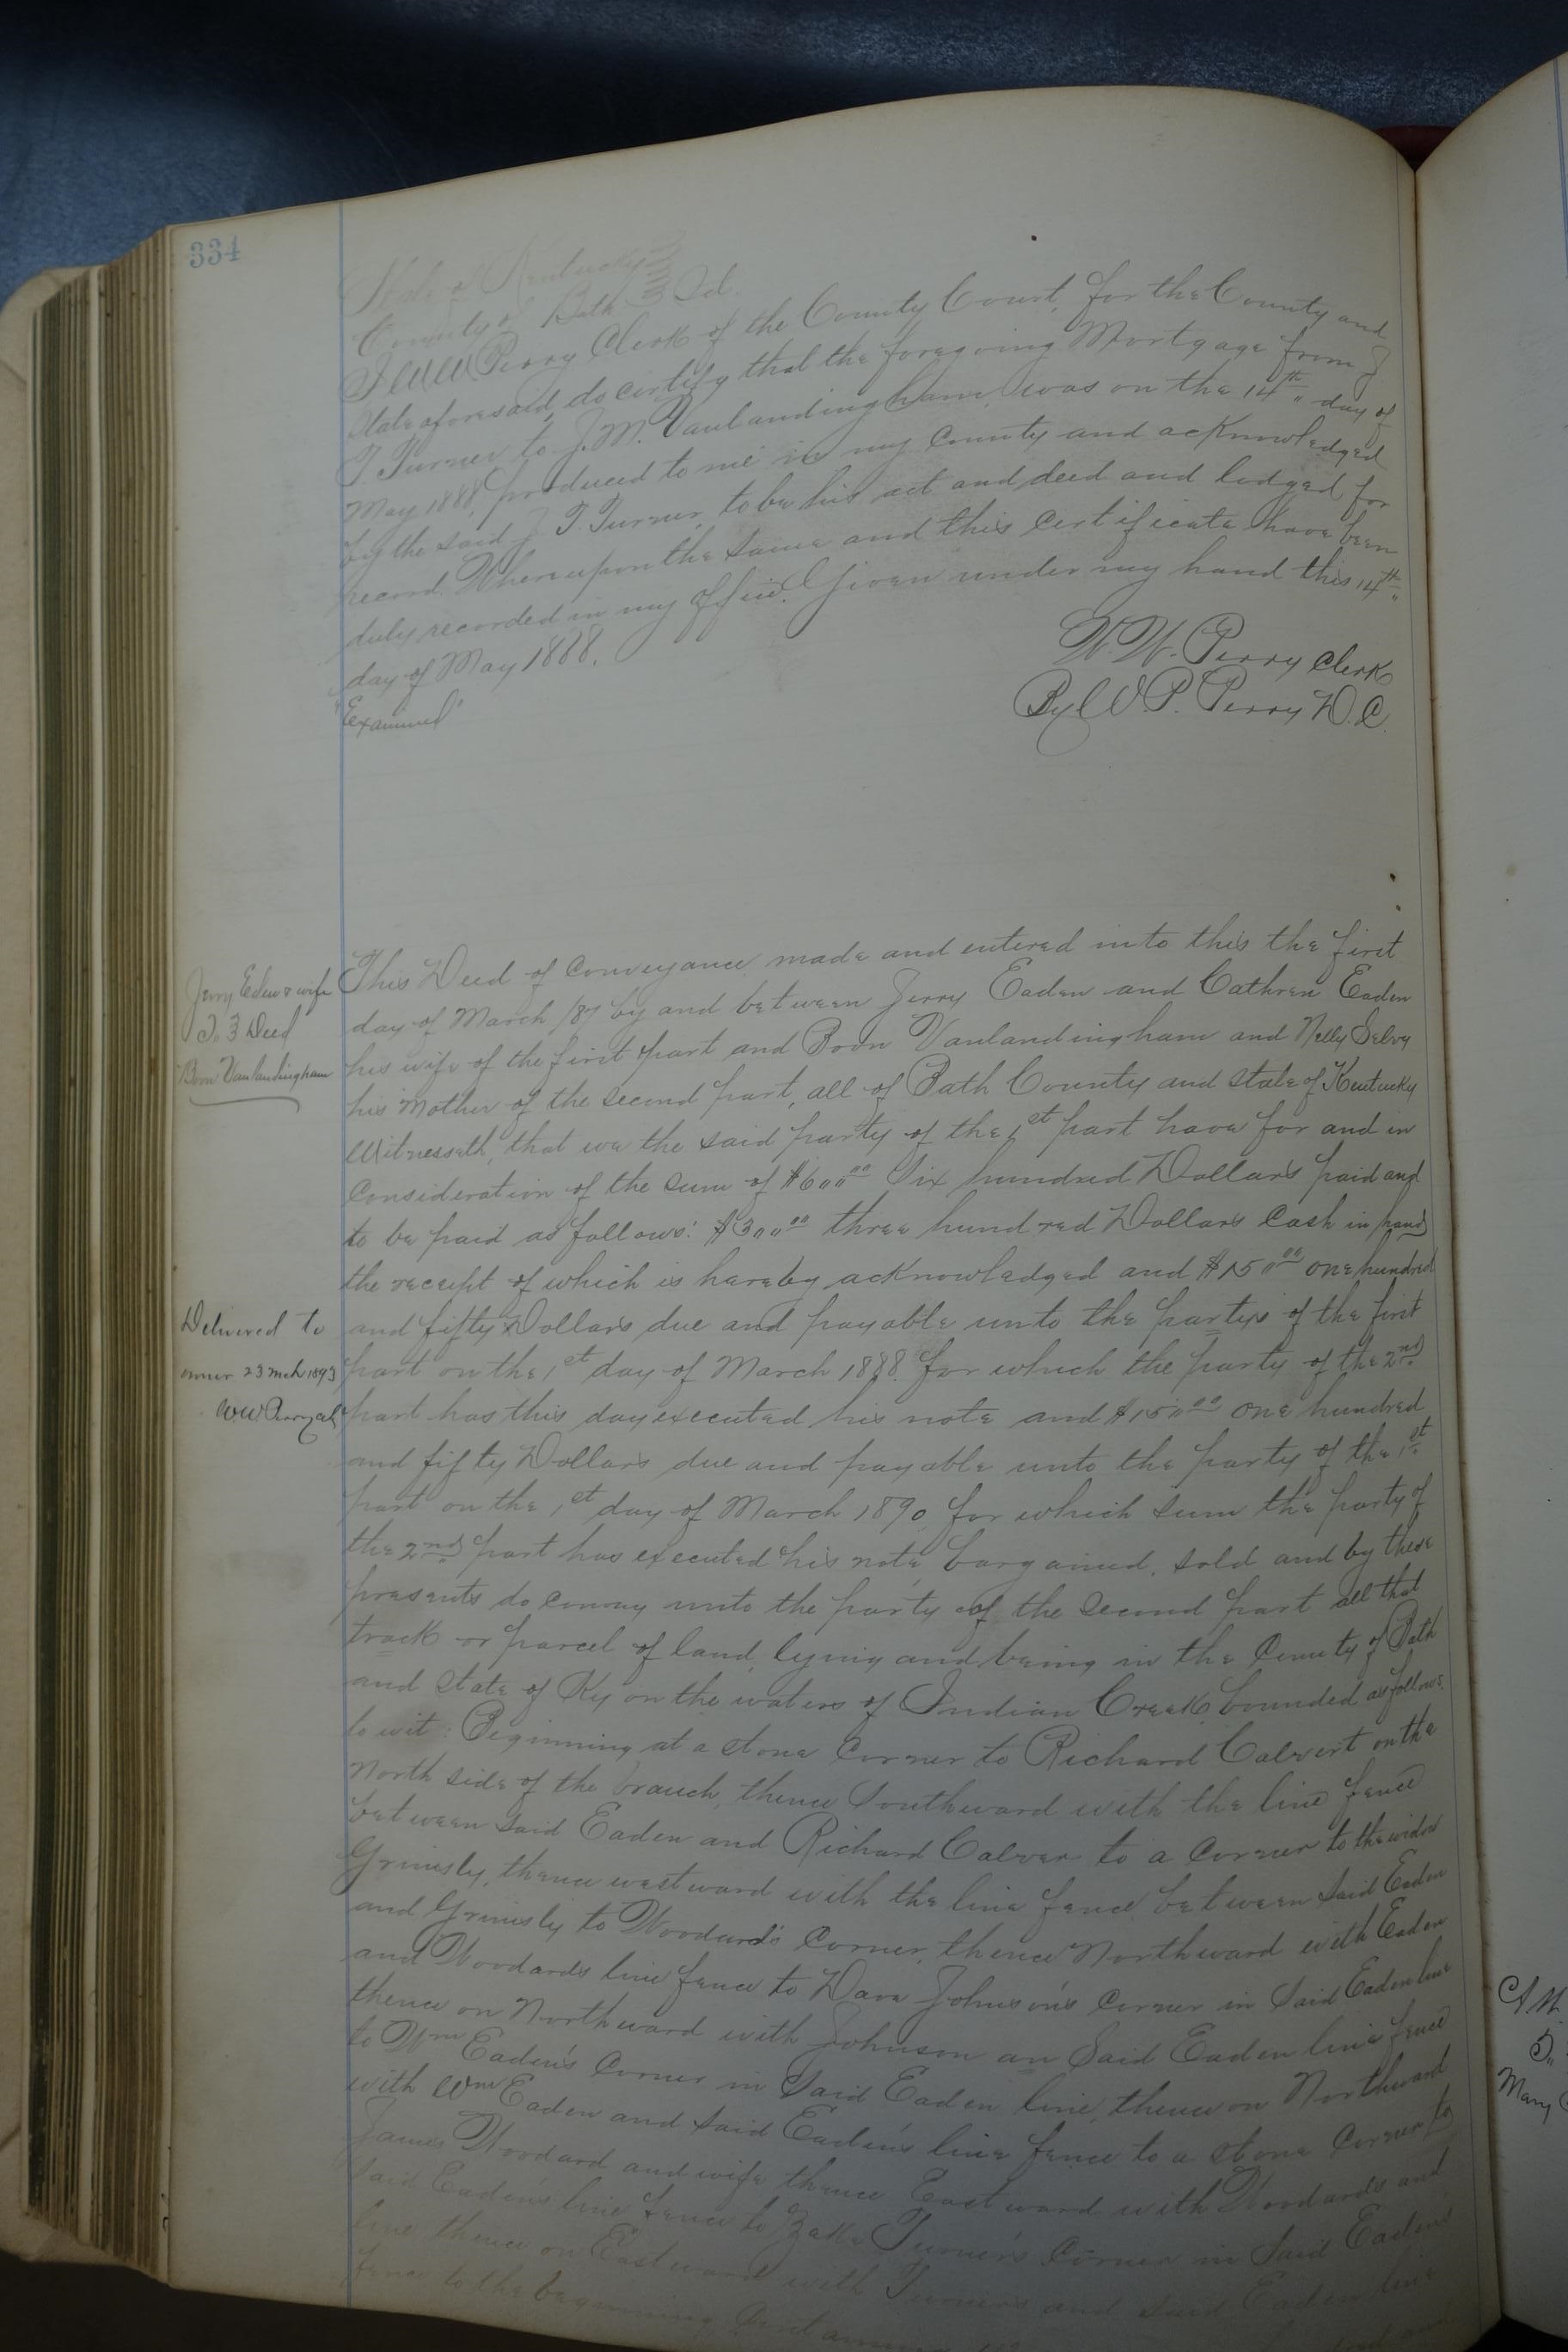 334
State of Kentucky
County of Bath Sct.
I W W Perry Clerk of the County Court, for the County and
State aforesaid, do certify that the foregoing Mortgage from J
T. Turner to J. M. Vanlandingham, was on the 14th day of
May 1888, produced to me in my County and acknowledged
by the said J. T. Turner, to be his act and deed and lodged for
record. Whereupon the same and this certificate have been
duly recorded in my office. Given under my hand this 14th
day of May 1888.
W. W. Perry Clerk
By W. P. Perry D. C.
"Examined"
Jerry Eden & wife
To } Deed
Boon Vanlandingham
This Deed of Conveyance made and entered into this the first
day of March /87 by and between Jerry Eaden and Cathren Eaden
his wife of the first part and Boon Vanlandingham and Nelly Selvy
his Mother of the second part, all of Bath County and state of Kentucky
Witnesseth, that we the said party of the 1st part have for and in
Consideration of the sum of $600.00 Six hundred Dollars paid and
to be paid as follows: $300.00 three hundred Dollars Cash in hand
the receipt of which is hereby acknowledged and $150.00 one hundred
and fifty Dollars due and payable unto the partys of the first
part on the 1st day of March 1888. for which the party of the 2nd
part has this day executed his note and $150.00 one hundred
and fifty Dollars due and payable unto the party of the 1st
part on the 1st day of March 1890 for which sum the party of
the 2nd part has executed his note, bargained, sold and by these
presents do convey unto the party of the second part all that
track or parcel of land, lying and being in the County of Bath
and state of Ky on the waters of Indian Creek bounded as follows.
to wit: Beginning at a stone Corner to Richard Calvert on the
North side of the branch, thence Southward with the line fence
between said Eaden and Richard Calver to a Corner to the widow
Grimsly, thence westward with the line fence between said Eaden
and Grimsly to Woodard's Corner, thence Northward with Eaden
and Woodards line fence to Dave Johnson's Corner in said Eaden line
thence on Northward with Johnson an Said Eaden line fence
to Wm Eaden's Corner in Said Eaden line, thence on Northward
with Wm Eaden and said Eaden's line fence to a stone Corner to
James Woodard and wife thence Eastward with Woodards and
said Eadens line fence to Zack Turner's Corner in Said Eadens
line thence on Eastward with Turners and said Eaden line
fence to the beginning Containing
Delivered to
owner 23 Mch 1893
W W Perry clk
Mary